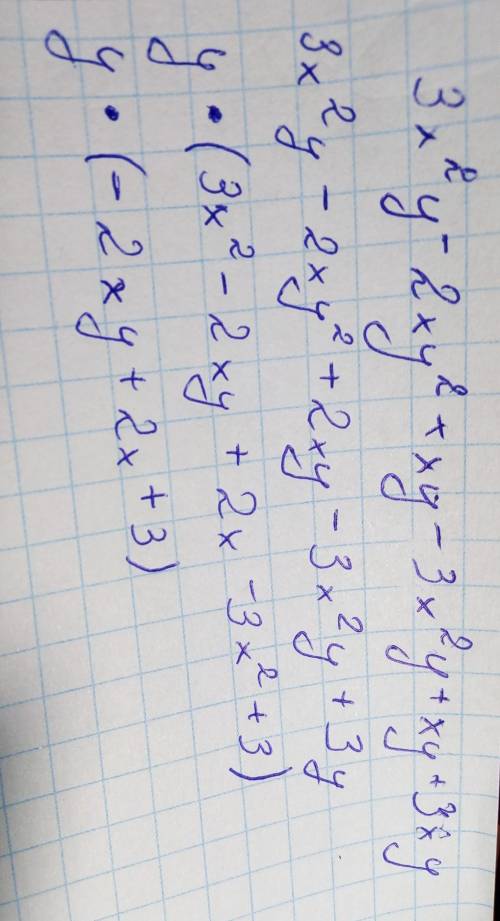 3x²y - 2xy² + xy - 3x²y + xy + 3xy
3x²y - 2xy² + 2xy - 3x²y + 3y
y • (3x² - 2xy + 2x - 3x² + 3)
y • (- 2xy + 2x + 3)